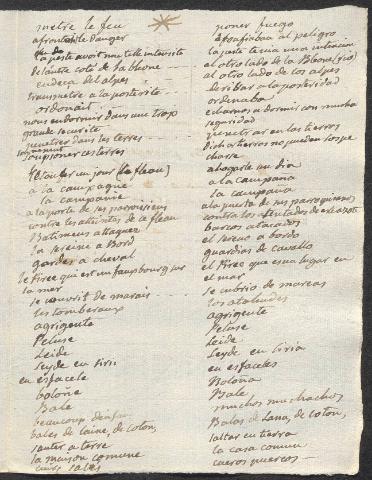 mettre le feu
afronter le danger
la peste avoit une telle intensité
de l'autre coté de la
en deça des alpes
transmetre a la posterité
ordonait
nous endormir dans une trop
grande securité
penetrer dans les terres
soupçoner ces terres
étoufer un jour (le fleau)
a la campagne
la campanie
a la porte de ses paroissiens
contre les atteintes de ce fleau
Batimens attaqués
la sereine a Bord
gardes a cheval
le Pirée qui est un faubourg sur
la mer
se couvrit de marais
les tombereaux
agrigente
Peluse
Leide
Leyde en Sirie
en esfacele
boloñe
Bale
beaucoup d'enfans
bales de laine, de coton,
sauter a terre
la maison comune
cuirs salés
poner fuego
desafiaba al peligro
la peste tenia una intencion
el otro lado de la
al otro lado de los alpes
deribar a la posteridad
ordenaba
echarnos a dormir con mucha
seguridad
penetrar en las tierras
dichas tierras no pueden sospe
charse
ahogarle un dia
a la campaña
la campania
a la puerta de sus parroquianos
contra los atentados de este azote
barcos atacados
el sereno a bordo
guardias de cavallo
el Pireo que es un lugar en
el mar
se cubrio de mareas
los ataludes
agrigente
Peluse
Leide
Leyde en Siria
en esfaceles
Boloña
Bale
muchos muchachos
Balas de Lana, de coton,
saltar en tierra
la casa comun
cueros puercos